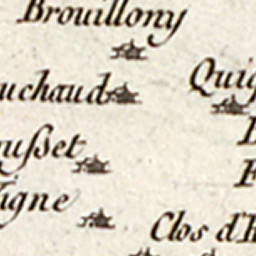 Brouillony
uchaud
Quig
ußet
igne
Clos d'